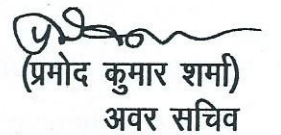 (प्रमोद कुमार शर्मा)
अवर सचिव